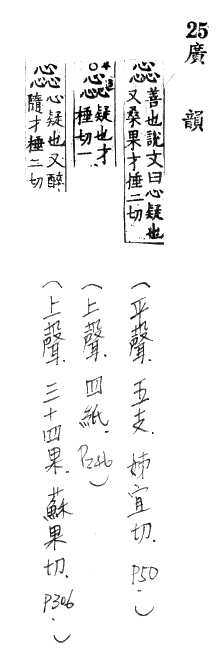 25廣韻
惢善也說文曰心疑也
又桑果才捶二切
惢疑也才
捶切一
惢心疑也又醉
隨才捶二切
（平聲．五支．姊宜切．P50．）
（上聲．四紙．P246）
（上聲．三十四果．蘇果切．P306．）